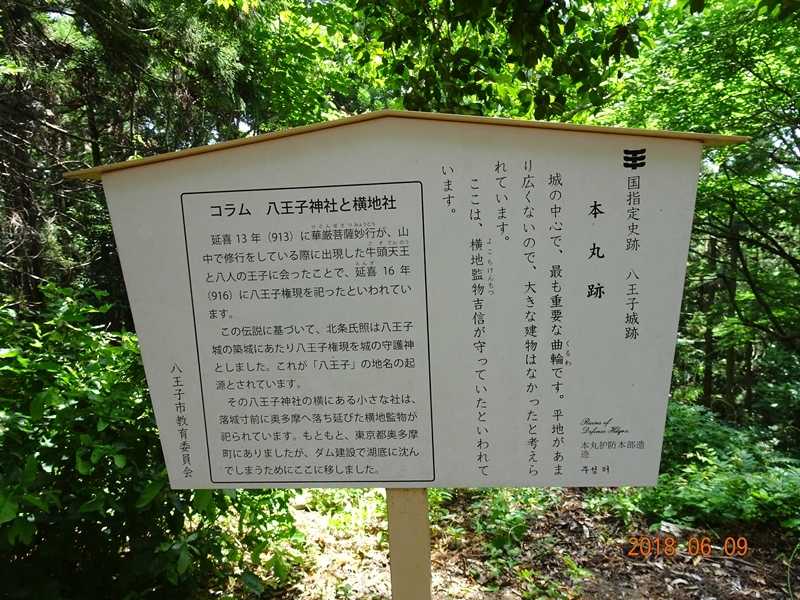 国指定史跡　八王子城跡
本丸跡
城の中心で、最も重要な曲輪です。平地があま
り広くないので、大きな建物はなかったと考えら
れています。
ここは、横地監物吉信が守っていたといわれて
います。
くるわ
よこちけんもつ
Ruins of
Defense Helper
本丸护防本部遗
迹
주성 터
コラム　八王子神社と横地社
延喜 13 年（913）に華厳菩薩妙行が、山
中で修行をしている際に出現した牛頭天王
と八人の王子に会ったことで、延喜 16 年
（916）に八王子権現を祀ったといわれてい
ます。
この伝説に基づいて、北条氏照は八王子
城の築城にあたり八王子権現を城の守護神
としました。これが「八王子」の地名の起
源とされています。
その八王子神社の横にある小さな社は、
落城寸前に奥多摩へ落ち延びた横地監物が
祀られています。もともと、東京都奥多摩
町にありましたが、ダム建設で湖底に沈ん
でしまうためにここに移しました。
八王子市教育委員会
2018 06 09